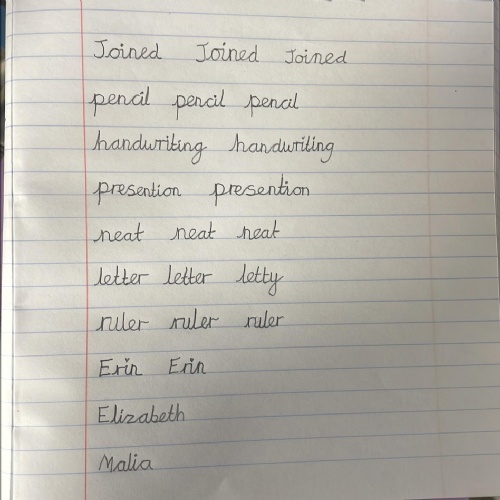 Joined Joined Joined
pencil pencil pencil
handwriting handwriting
presention presention
neat neat neat
letter letter letty
ruler ruler ruler
Erin Erin
Elizabeth
Malia